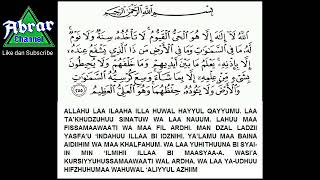 Abrar
Channel
Like dan Subscribe
بِسْمِ اللَّهِ الرَّحْمَنِ الرَّحِيمِ
اَللَّهُ لَا إِلَهَ إِلَّا هُوَ الْحَيُّ الْقَيُّومُ لَا تَأْخُذُهُ سِنَةٌ وَلَا نَوْمٌ
لَهُ مَا فِي السَّمَاوَاتِ وَمَا فِي الْأَرْضِ مَنْ ذَا الَّذِي يَشْفَعُ عِنْدَهُ
إِلَّا بِإِذْنِهِ يَعْلَمُ مَا بَيْنَ أَيْدِيهِمْ وَمَا خَلْفَهُمْ وَلَا يُحِيطُونَ
بِشَيْءٍ مِنْ عِلْمِهِ إِلَّا بِمَا شَاءَ وَسِعَ كُرْسِيُّهُ السَّمَاوَاتِ
وَالْأَرْضَ وَلَا يَئُودُهُ حِفْظُهُمَا وَهُوَ الْعَلِيُّ الْعَظِيمُ ﴿٢٥٥﴾
ALLAHU LAA ILAAHA ILLA HUWAL HAYYUL QAYYUMU. LAA
TA'KHUDZUHUU SINATUW WA LAA NAUUM. LAHUU MAA
FISSAMAAWAATI WA MAA FIL ARDHI. MAN DZAL LADZI
YASFA'U 'INDAHUU ILLAA BI IDZNIHI. YA'LAMU MAA BAINA
AIDIHIM WA MAA KHALFAHUM. WA LAA YUHITHUUNA BI SYAI-
IN MIN 'ILMIHII ILLAA BI MAASYAA-A. WASI'A
KURSIYYUHUSSAMAAWAATI WAL ARDHA. WA LAA YA-UDHUU
HIFZHUHUMAA WAHUWAL 'ALIYYUL AZHIM